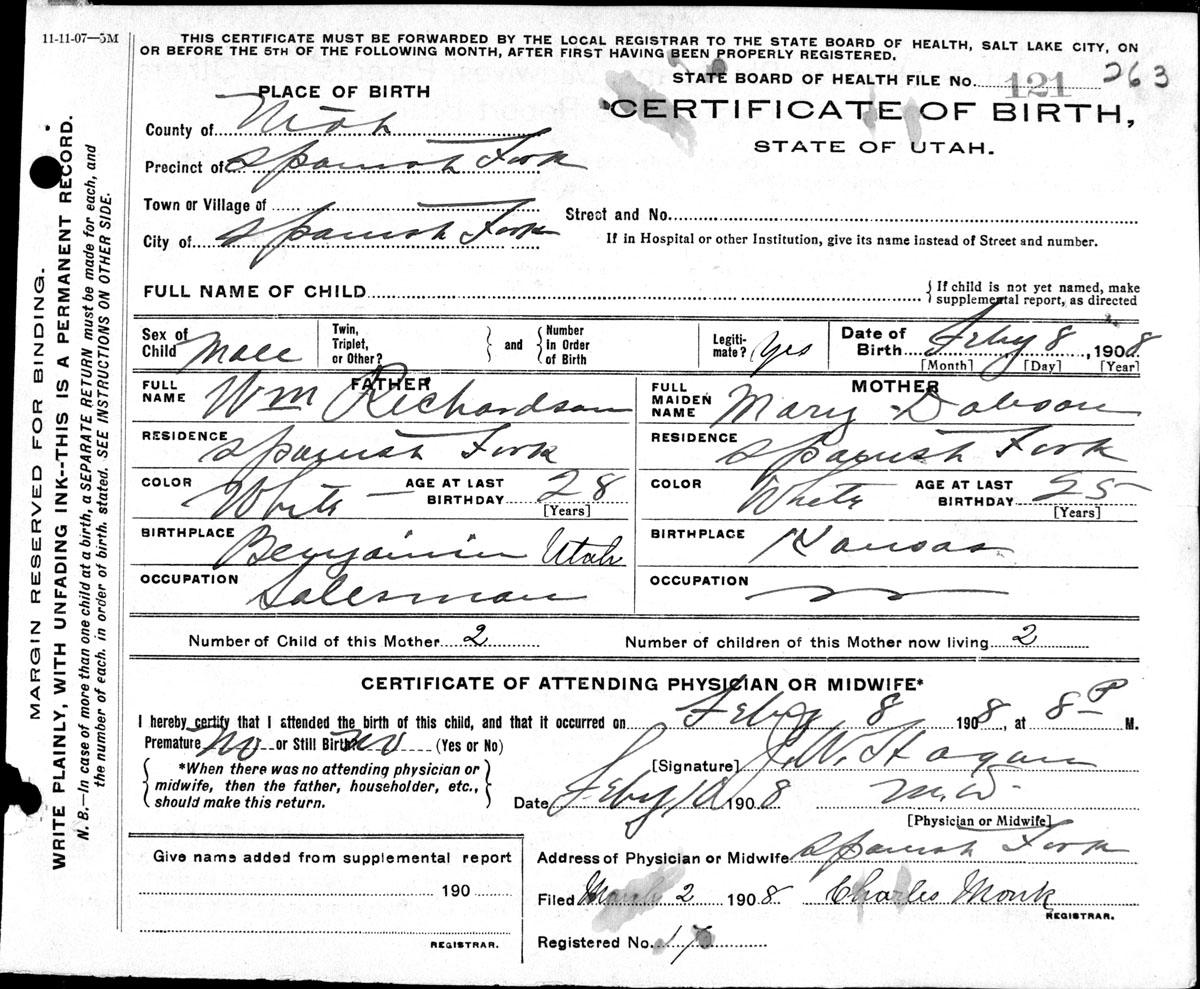 11-11-07—5M
THIS CERTIFICATE MUST BE FORWARDED BY THE LOCAL REGISTRAR TO THE STATE BOARD OF HEALTH, SALT LAKE CITY, ON
OR BEFORE THE 5TH OF THE FOLLOWING MONTH, AFTER FIRST HAVING BEEN PROPERLY REGISTERED.
STATE BOARD OF HEALTH FILE No. 121 263
PLACE OF BIRTH
CERTIFICATE OF BIRTH,
STATE OF UTAH.
County of Utah
Precinct of Spanish Fork
Town or Village of
Street and No.
City of Spanish Fork
If in Hospital or other Institution, give its name instead of Street and number.
FULL NAME OF CHILD
{If child is not yet named, make
supplemental report, as directed
Sex of Child Male
Twin, Triplet, or Other?
and
Number In Order of Birth
Legiti-mate? Yes
Date of Birth Feby 8, 1908
[Month] [Day] [Year]
FATHER
FULL NAME Wm Richardson
RESIDENCE Spanish Fork
COLOR White — AGE AT LAST BIRTHDAY 28
[Years]
BIRTHPLACE Benjamin Utah
OCCUPATION Salesman
MOTHER
FULL MAIDEN NAME Mary Dobson
RESIDENCE Spanish Fork
COLOR White AGE AT LAST BIRTHDAY 25
[Years]
BIRTHPLACE Kansas
OCCUPATION
Number of Child of this Mother 2
Number of children of this Mother now living 2
CERTIFICATE OF ATTENDING PHYSICIAN OR MIDWIFE*
I hereby certify that I attended the birth of this child, and that it occurred on Feby 8 1908, at 8 P M.
Premature No or Still Birth? No (Yes or No)
*When there was no attending physician or
midwife, then the father, householder, etc.,
should make this return.
[Signature] J. W. Hagan
Date Feby 10 1908 M.D.
[Physician or Midwife]
Address of Physician or Midwife Spanish Fork
Filed March 2 1908. Charles Monk
REGISTRAR.
Registered No.
Give name added from supplemental report
190
REGISTRAR.
MARGIN RESERVED FOR BINDING.
WRITE PLAINLY, WITH UNFADING INK--THIS IS A PERMANENT RECORD.
N. B.—In case of more than one child at a birth, a SEPARATE RETURN must be made for each, and
the number of each, in order of birth, stated. SEE INSTRUCTIONS ON OTHER SIDE.